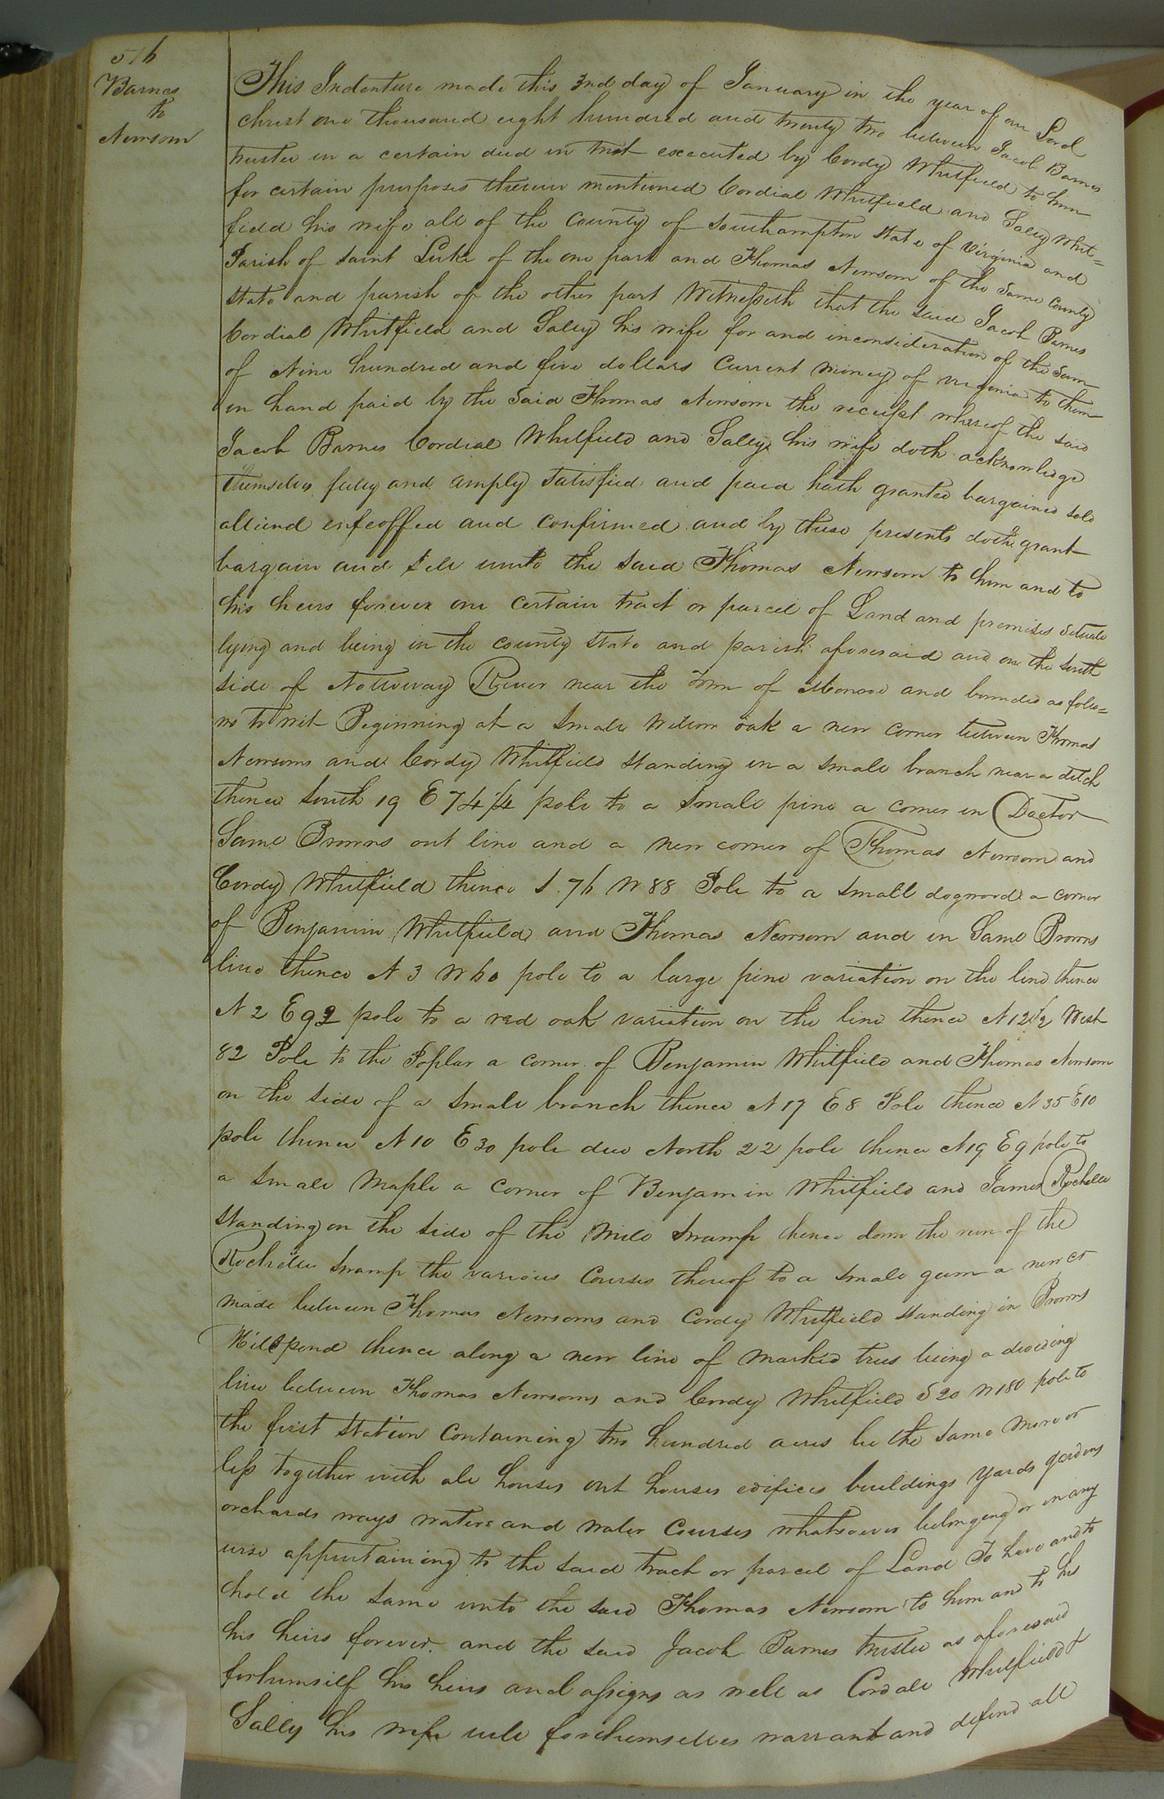 516
Barnes
to
Newsom
This Indenture made this 3rd day of January in the year of our Lord
christ one thousand eight hundred and twenty two between Jacob Barnes
trustee in a certain deed in trust excecuted by Cordy Whitfield to him
for certain purposes therein mentioned Cordial Whitfield and Salley Whit=
field his wife all of the County of Southampton State of Virginia and
Parish of Saint Luke of the one part and Thomas Newsom of the Same County
State and parish of the other part Witnesseth that the said Jacob Barnes
Cordial Whitfield and Salley his wife for and inconsideration of the Sum
of Nine hundred and five dollars Current money of virginia to them
in hand paid by the Said Thomas Newsom the receipt whereof the said
Jacob Barnes Cordial Whitfield and Salley his wife doth acknowledge
themselves fully and amply Satisfied and paid hath granted bargained sold
aliiend enfeoffed and confirmed and by these presents doth grant
bargain and Sell unto the Said Thomas Newsom to him and to
his heirs forever one certain tract or parcel of Land and premises Situate
lying and being in the county State and parish aforesaid and on the South
side of Nottoway River near the Town of Monroe and bounded as follo=
ws to wit Beginning at a small willow oak a new corner between Thomas
Newsoms and Cordy Whitfield standing in a small branch near a ditch
thence South 19 E 74 1/4 pole to a small pine a corner in Doctor
Same Browns out line and a new corner of Thomas Newsom and
Cordy Whitfield thence S. 76 W 88 Pole to a small dogwood a corner
of Benjamin Whitfield and Thomas Newsom and in Same Browns
line thence N 3 W 60 pole to a large pine variation on the line thence
N 2 E 92 pole to a red oak variation on the line thence N 12 1/2 West
82 Pole to the Poplar a corner of Benjamin Whitfield and Thomas Newsom
on the side of a small branch thence N 17 E 8 Pole thence N 35 E 10
pole thence N 10 E 30 pole due North 22 pole thence N 19 E 9 pole to
a small Maple a corner of Benjamin Whitfield and James Rochelle
standing on the side of the Mill Swamp thence down the run of the
Rochelles Swamp the various Courses thereof to a small gum a new cr
made between Thomas Newsoms and Cordy Whitfield standing in Browns
Millpond thence along a new line of marked trees being a deviding
line between Thomas Newsoms and Cordy Whitfield S 20 W 180 pole to
the first Station Containing two hundred acres be the same more or
less together with all houses out houses edifices buildings yards gardens
orchards ways waters and water Courses whatsoever belonging or in any
wise appertaining to the said tract or parcel of Land To have and to
hold the same unto the said Thomas Newsom to him and to his
his heirs forever. and the said Jacob Barnes trustee as aforesaid
for himself his heirs and assigns as well as Cordall Whitfield &
Salley his wife will for themselves warrant and defend all